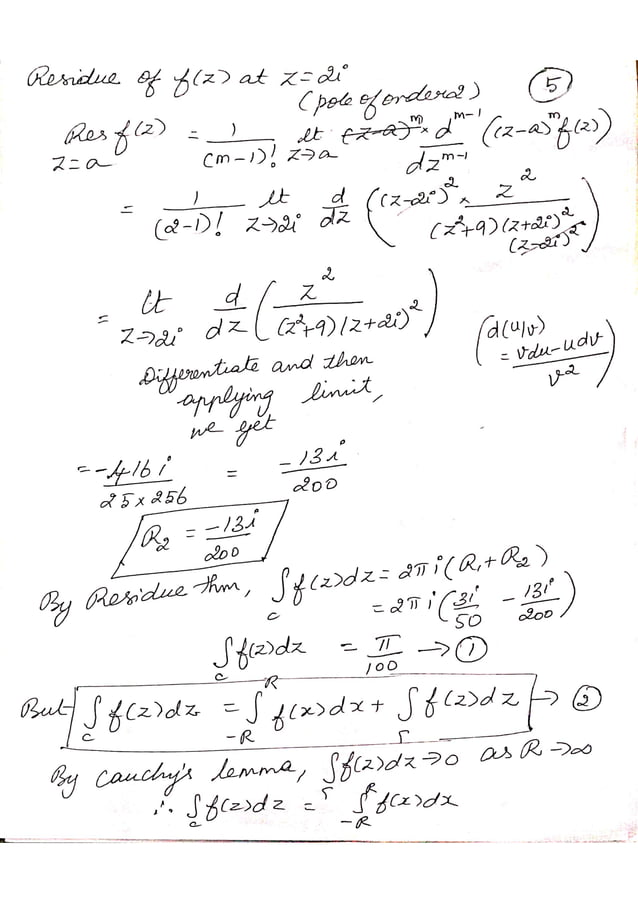 Residue of f(z) at z=2i
(pole of order 2)
5
Res f(z) = 1/(m-1)! lt z→a (z-a)^m × d^(m-1)/dz^(m-1) ((z-a)^m f(z))
z=a
= 1/(2-1)! lt z→2i d/dz ((z-2i)^2 × z^2/((z^2+9)(z+2i)^2 (z-2i)^2))
= Lt z→2i d/dz (z^2/((z^2+9)(z+2i)^2))
(d(u/v) = (vdu-udv)/v^2)
Differentiate and then
applying limit,
we get
= -416i/(25×256) = -13i/200
R2 = -13i/200
By Residue thm, ∫c f(z)dz = 2πi(R1+R2)
= 2πi(3i/50 - 13i/200)
∫c f(z)dz = π/100 → ①
But ∫c f(z)dz = ∫-R^R f(x)dx + ∫Γ f(z)dz → ②
By Cauchy's lemma, ∫Γ f(z)dz→0 as R→∞
∴ ∫c f(z)dz = ∫-R^R f(x)dx